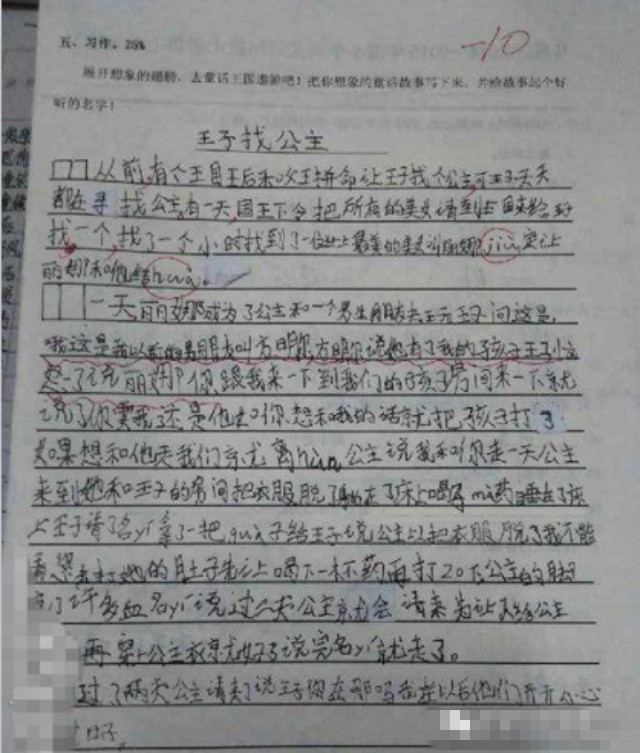 -10
五、习作。25%
展开想象的翅膀，去童话王国遨游吧！把你想象的童话故事写下来，并给故事起个好
听的名字！
王子找公主
从前,有个王国王后和国王拼命让王子找个公主,可王子天天
都在寻找公主,有一天,国王下令把所有的美女请到王国来给王子
找一个,找了一个小时找到了一位世上最美的美女叫丽娜,jiù定让
丽娜和他结hūn。
一天,丽娜成为了公主和一个男生朋友去玩王子问这是,
哦这是我以前的男朋友叫方明尔方明尔说她有了我的孩子王子
了说丽娜你跟我来一下到我们的孩子房间来一下就
说了你要我还是他去叫你想和我的话就把孩子打了
如果想和他走我们就离hūn公主说我和你走一天公主
来到她和王子的房间把衣服脱了躺在了床上喝了mí药睡在了床
上王子请了名yī拿了一把 子给王子说公主以把衣服脱了我不能
看 去打她的肚子先让喝下一杯药再打20下公主的脚
流了许多血名yī说过二天公主就会 请来先让 给公主
再穿上公主衣就好了说完名yī就走了。
过了两天公主请来了说王子你在那吗我在以后他们开开心心